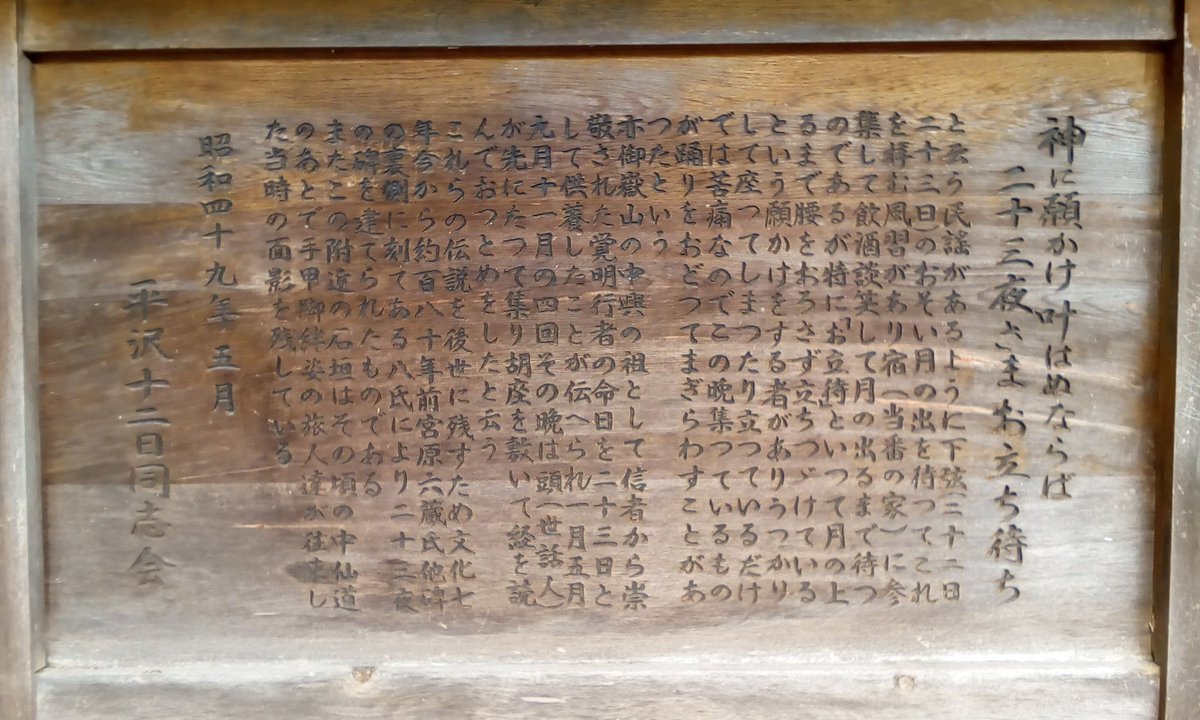 神に願かけ叶はぬならば
二十三夜さまお立ち待ち
と云う民謡があるように下弦(二十二日
二十三日)のおそい月の出を待つてこれ
を拝む風習があり宿(当番の家)に参
集して飲酒談笑して月の出るまで待つ
のであるが特に「お立待」といつて月の上
るまで腰をおろさず立ちつゞけている
という願かけをする者がありうつかり
して座つてしまつたり立つているだけ
では苦痛なのでこの晩集つているもの
が踊りをおどつてまぎらわすことがあ
つたという
亦御嶽山の中興の祖として信者から崇
敬された覚明行者の命日を二十三日と
して供養したことが伝へられ一月五月
九月十一月の四回その晩は頭(世話人)
が先にたつて集り胡座を敷いて経を読
んでおつとめをしたと云う
これらの伝説を後世に残すため文化七
年今から約百八十年前宮原六蔵氏他碑
の裏側に刻てある八氏により二十三夜
の碑を建てられたものである
またこの附近の石垣はその頃の中仙道
のあとで手甲脚絆姿の旅人達が往来し
た当時の面影を残している
昭和四十九年五月
平沢十二日同志会